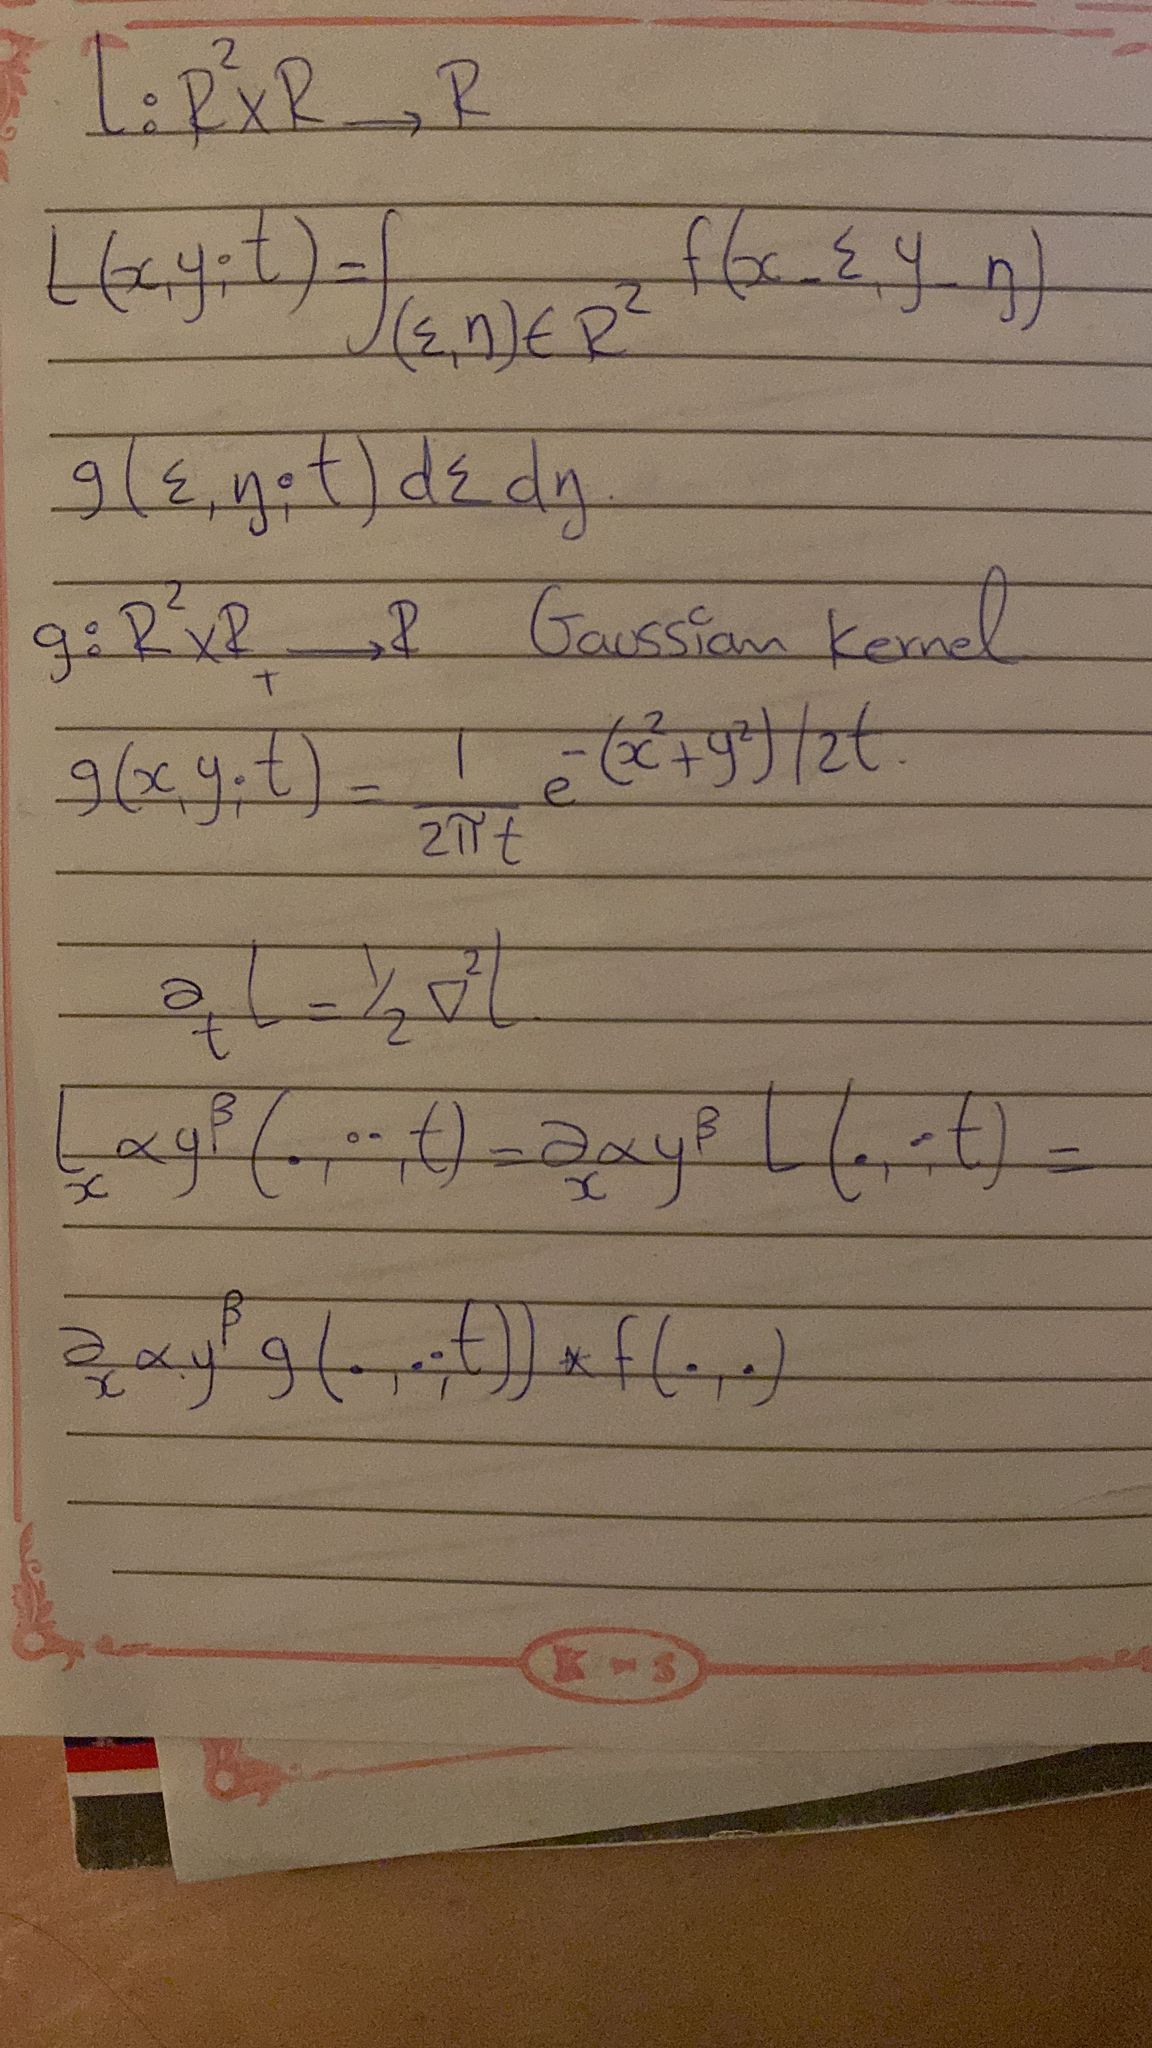 L: R²xR → R
L(x,y;t) = ∫(ε,η)∈R² f(x-ε, y-η)
g(ε,η;t) dε dη.
g: R²xR₊ → R Gaussian kernel
g(x,y;t) = 1/2πt e^-(x²+y²)/2t.
∂ₜL = 1/2 ∇²L.
Lₓαy^β(·,·;t) = ∂ₓαy^β L(·,·;t) =
∂ₓαy^β g(·,·;t)) * f(·,·)